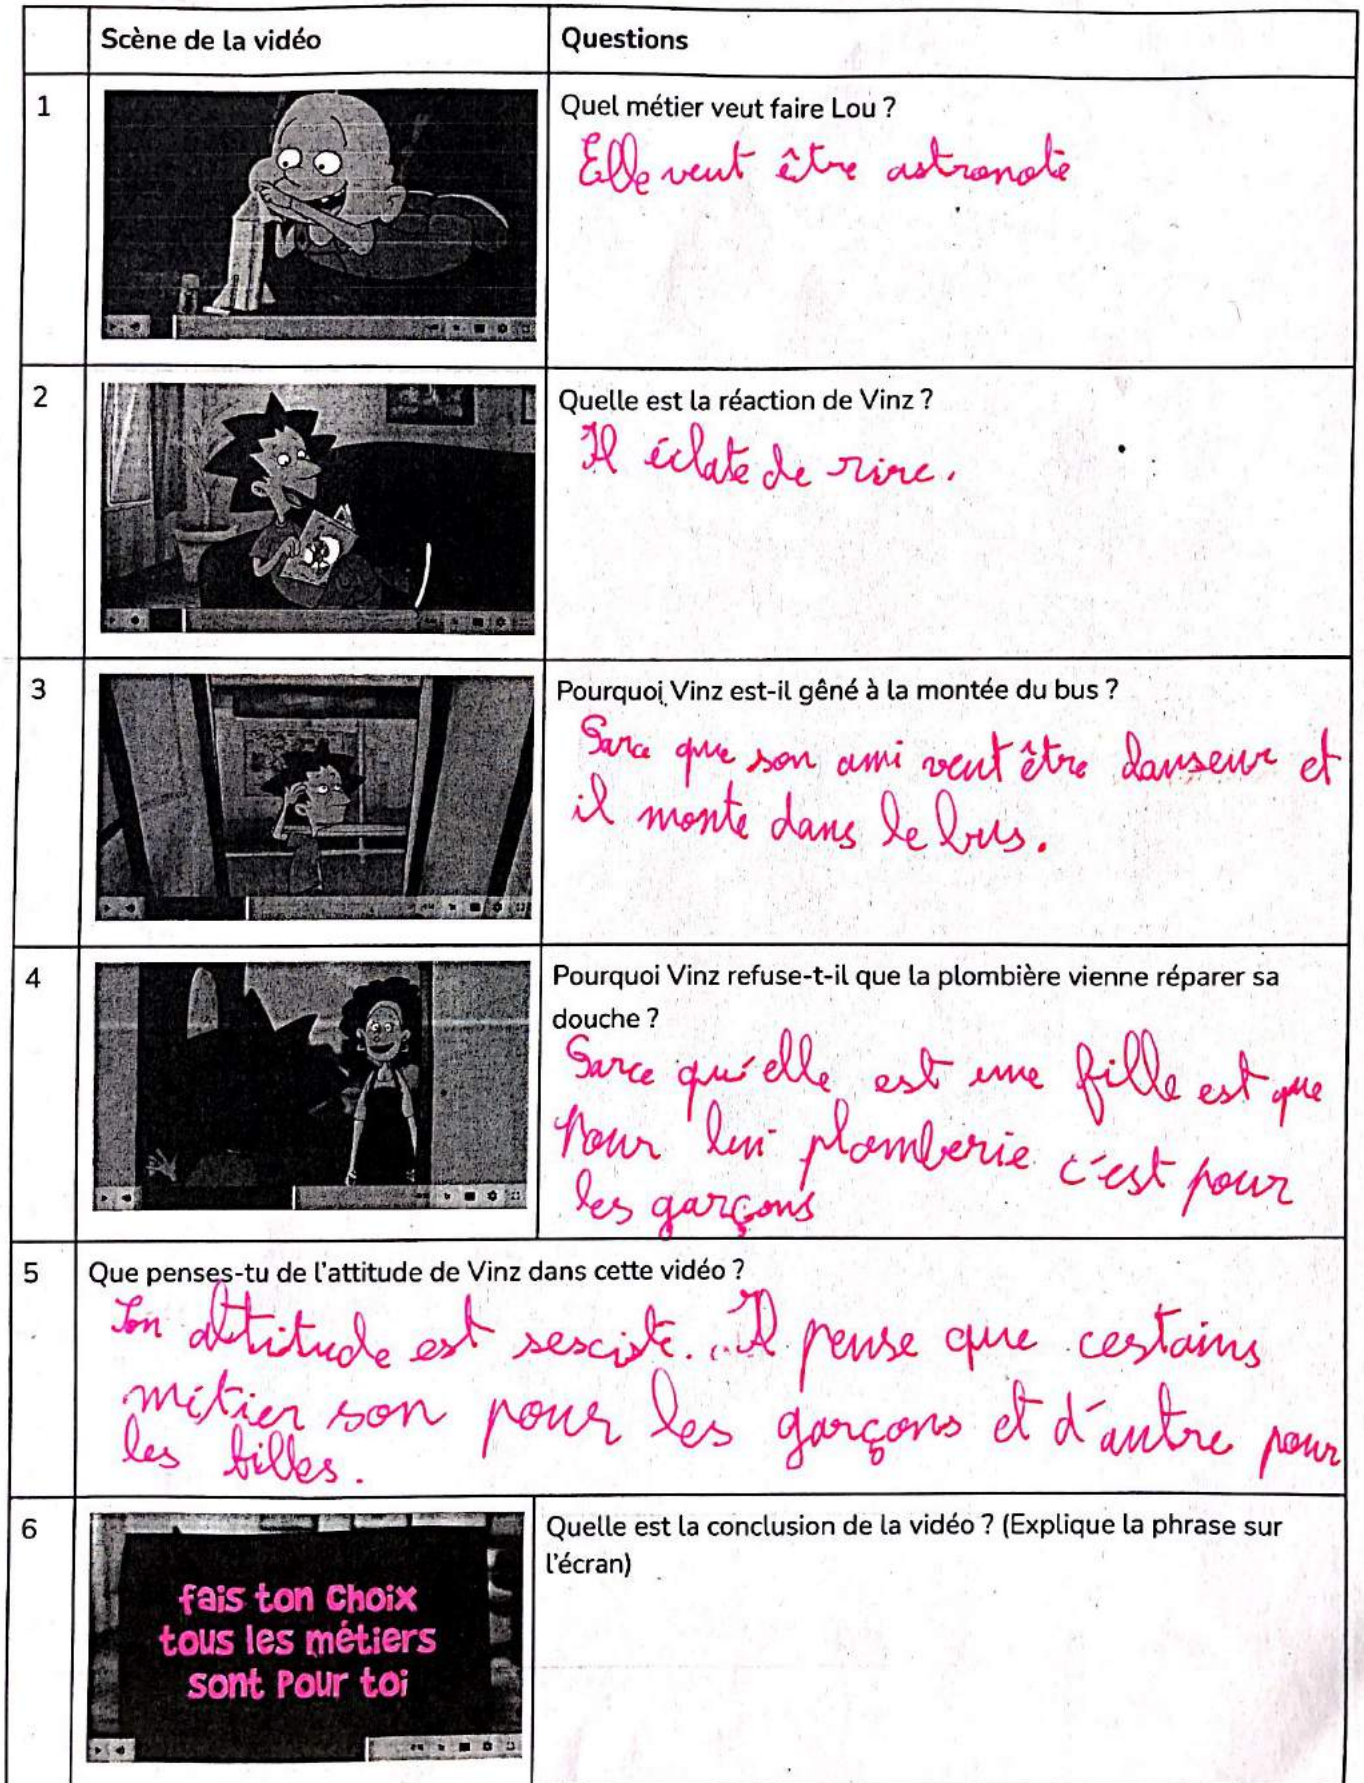 Scène de la vidéo
Questions
1
Quel métier veut faire Lou ?
Elle veut être astronote
2
Quelle est la réaction de Vinz ?
Il éclate de rire.
3
Pourquoi Vinz est-il gêné à la montée du bus ?
Parce que son ami veut être danseur et
il monte dans le bus.
4
Pourquoi Vinz refuse-t-il que la plombière vienne réparer sa
douche ?
Parce qu'elle est une fille est que
pour lui plomberie c'est pour
les garçons
5
Que penses-tu de l'attitude de Vinz dans cette vidéo ?
Son attitude est sesciste. Il pense que certains
métier son pour les garçons et d'autre pour
les filles.
6
fais ton choix
tous les métiers
sont pour toi
Quelle est la conclusion de la vidéo ? (Explique la phrase sur
l'écran)